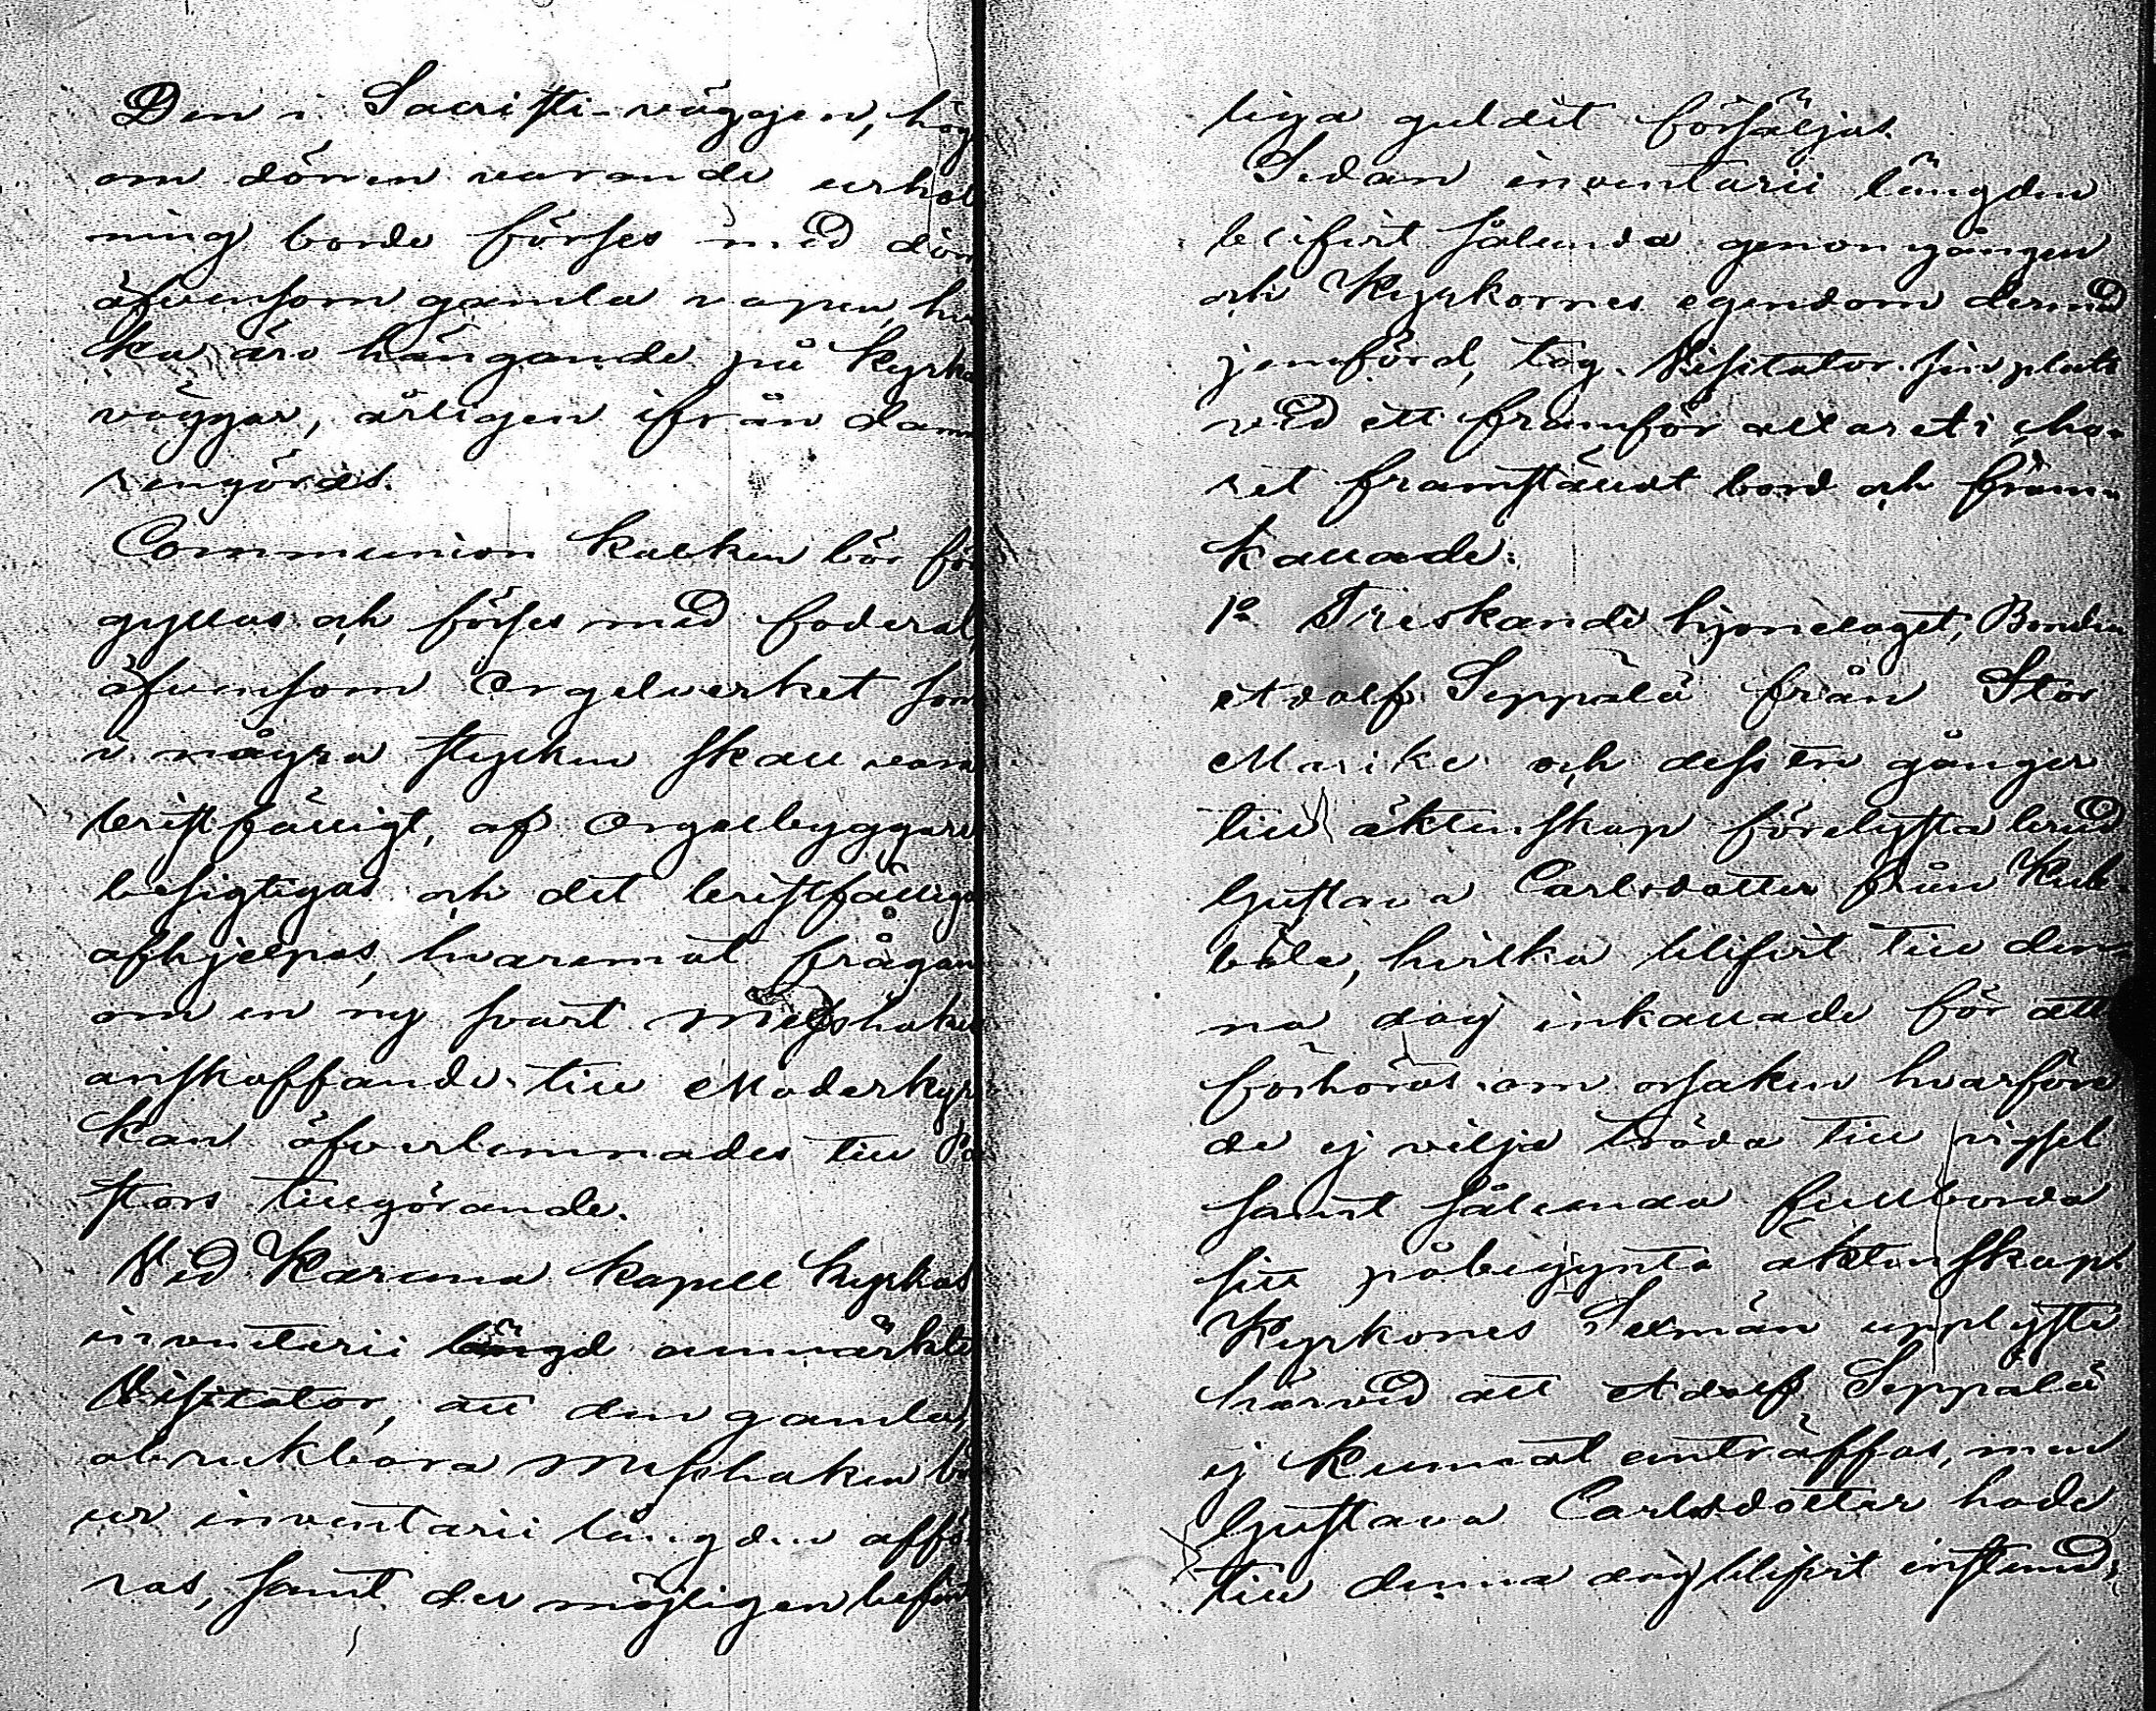 Den i Sacristi-väggen, hög
om dörren varande urhol
ning borde förses med dörr
äfvensom gamla vapen, hvil
ka äro hängande på kyrko
väggar, årligen ifrån dam
rengöras.
Communion kalken bör för
gyllas och förses med foderal,
äfvensom Orgelverket som
i några stycken skall vara
bristfälligt, af Orgelbyggare
besigtigas och det bristfälliga
afhjelpas, hvaremot frågan
om en ny svart Messhakes
anskaffande till Moderkyr
kan öfverlemnades till Pa
stors tillgörande.
Vid Karuna kapell kyrkas
inventarii längd anmärkte
Visitator, att den gamla,
obrukbara Messhaken bör
ur inventarii längden afför
ras, samt det möjligen befint
liga guldet försäljas.
Sedan inventarii längden
blifvit sålunda genomgången
och Kyrkornes egendom dermed
jemförd, tog Visitator sin plats
vid ett framför altaret i cho-
ret framstäldt bord och fram-
kallade:
1o Treskande hjonelaget, Bonden
Adolf Seppälä från Stor
Marike och dess en gånger
till äktenskap förelysta brud
Gustava Carlsdotter från
böle, hvilka blifvit till den-
na dag inkallade för att
förhöras om orsaken hvarföre
de ej vilja träda till vigsel
samt sålunda fullborda
sitt påbegynta äktenskap.
Kyrkones Sexmän upplyste
härvid att Adolf Seppälä
ej kunnat anträffas, men
Gustava Carlsdotter hade
till denna dag blifvit instämd,